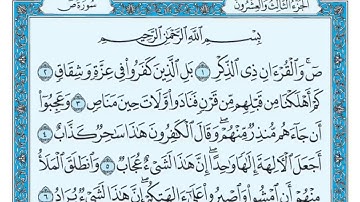 الجزء الثالث والعشرون
سورة ص
بِسْمِ ٱللَّهِ ٱلرَّحْمَٰنِ ٱلرَّحِيمِ
صٓ ۚ وَٱلْقُرْءَانِ ذِى ٱلذِّكْرِ ١ بَلِ ٱلَّذِينَ كَفَرُوا۟ فِى عِزَّةٍ وَشِقَاقٍ ٢
كَمْ أَهْلَكْنَا مِن قَبْلِهِم مِّن قَرْنٍ فَنَادَوا۟ وَّلَاتَ حِينَ مَنَاصٍ ٣ وَعَجِبُوٓا۟
أَن جَآءَهُم مُّنذِرٌ مِّنْهُمْ ۖ وَقَالَ ٱلْكَٰفِرُونَ هَٰذَا سَٰحِرٌ كَذَّابٌ ٤
أَجَعَلَ ٱلْءَالِهَةَ إِلَٰهًا وَٰحِدًا ۖ إِنَّ هَٰذَا لَشَىْءٌ عُجَابٌ ٥ وَٱنطَلَقَ ٱلْمَلَأُ
مِنْهُمْ أَنِ ٱمْشُوا۟ وَٱصْبِرُوا۟ عَلَىٰٓ ءَالِهَتِكُمْ ۖ إِنَّ هَٰذَا لَشَىْءٌ يُرَادُ ٦